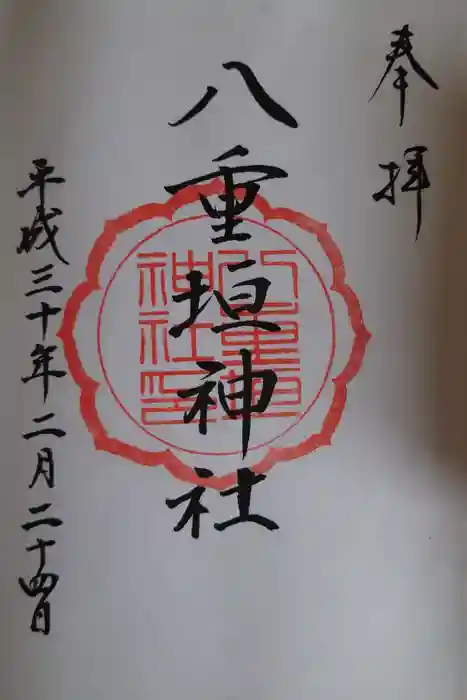 奉拝
八重垣神社
八重垣
神社印
平成三十年二月二十四日